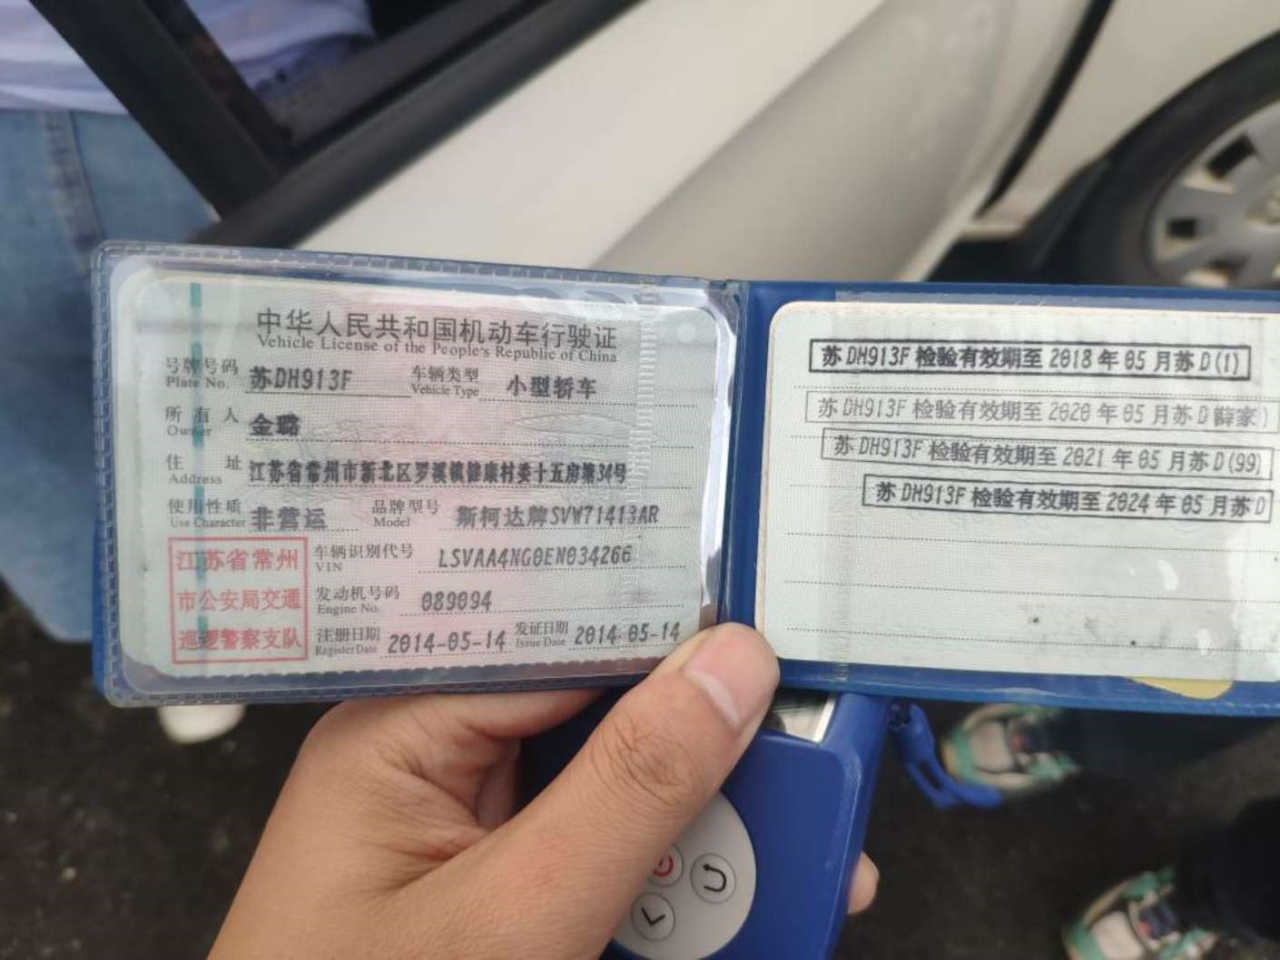 中华人民共和国机动车行驶证
Vehicle License of the People's Republic of China
号牌号码 Plate No. 苏DH913F 车辆类型 Vehicle Type 小型轿车
所有人 Owner 金璐
住址 Address 江苏省常州市新北区罗溪镇健康村委十五房塘34号
使用性质 Use Character 非营运 品牌型号 Model 斯柯达牌SVW71413AR
车辆识别代号 VIN LSVAA4NG0EN034266
发动机号码 Engine No. 089094
注册日期 Register Date 2014-05-14 发证日期 Issue Date 2014-05-14
江苏省常州
市公安局交通
巡逻警察支队
苏DH913F 检验有效期至 2018 年 05 月苏 D(1)
苏DH913F 检验有效期至 2020 年 05 月苏 D(薛家)
苏DH913F 检验有效期至 2021 年 05 月苏 D(99)
苏DH913F 检验有效期至 2024 年 05 月苏 D